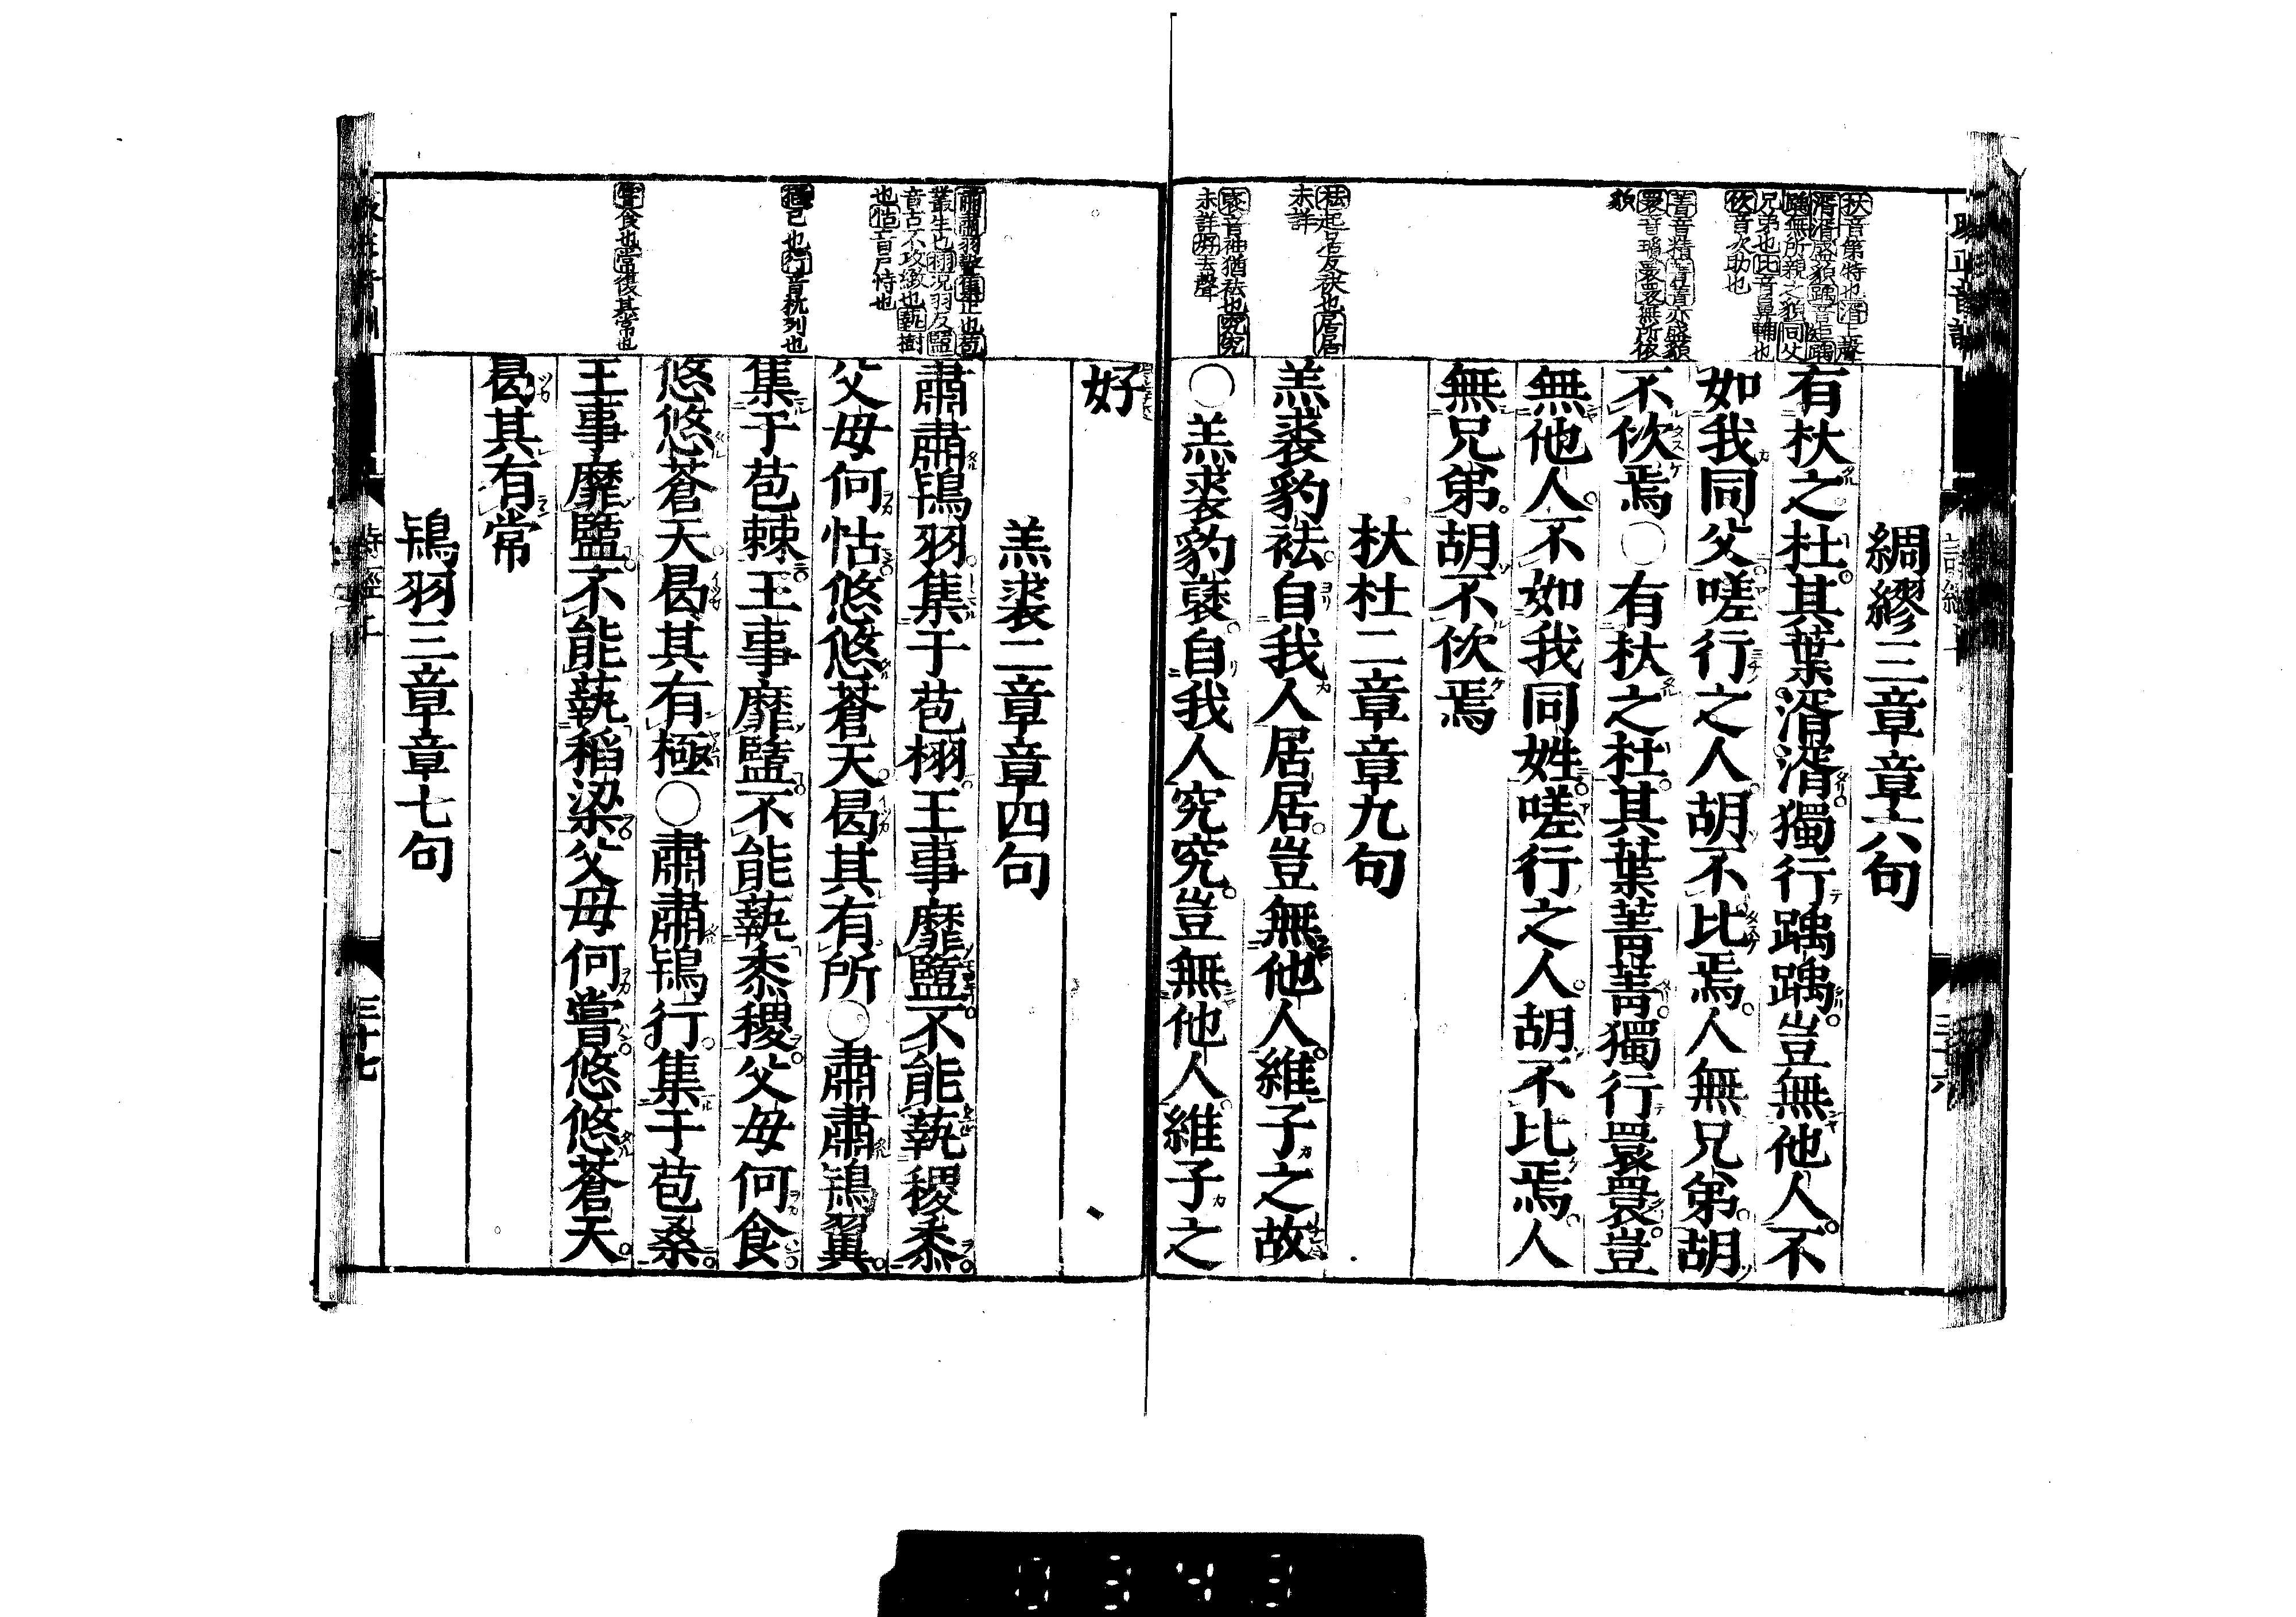 綢繆三章章六句
有杕之杜其葉湑湑獨行踽踽豈無他人不
如我同父嗟行之人胡不比焉人無兄弟胡
不佽焉○有杕之杜其葉菁菁獨行睘睘豈
無他人不如我同姓嗟行之人胡不比焉人
無兄弟胡不佽焉
杕杜二章章九句
羔裘豹袪自我人居居豈無他人維子之故
○羔裘豹褎自我人究究豈無他人維子之
好
羔裘二章章四句
肅肅鴇羽集于苞栩王事靡盬不能蓺稷黍
父母何怙悠悠蒼天曷其有所○肅肅鴇翼
集于苞棘王事靡盬不能蓺黍稷父母何食
悠悠蒼天曷其有極○肅肅鴇行集于苞桑
王事靡盬不能蓺稻粱父母何嘗悠悠蒼天
曷其有常
鴇羽三章章七句
杕音第特也湑上聲
湑湑盛貌踽音矩踽
踽無所親之貌同父
兄弟也比音鼻輔也
佽音次助也
菁音精菁菁亦盛貌
睘音瓊睘睘無所依
貌
袪起居反袂也居居
未詳
褎音袖猶袪也究究
未詳好去聲
肅肅羽聲集止也苞
叢生也栩況羽反盬
音古不攻緻也蓺樹
也怙音戶恃也
極已也行音杭列也
嘗食也常復其常也
三十六
三十七
0343